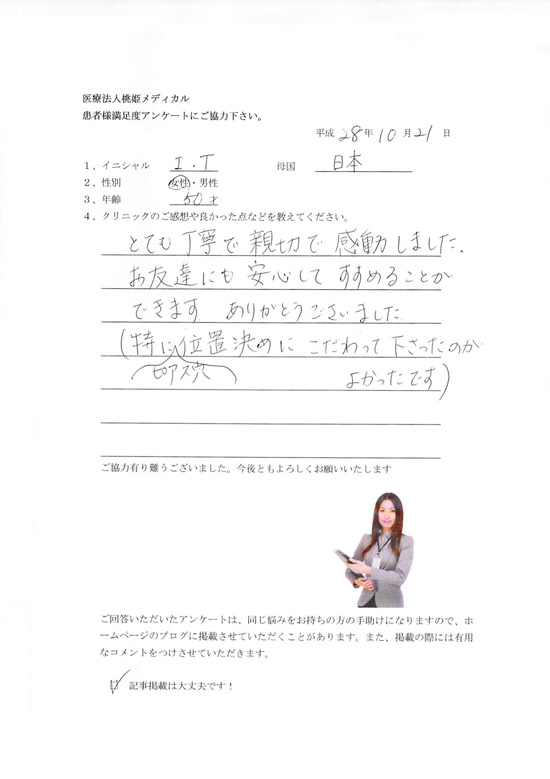 医療法人桃姫メディカル
患者様満足度アンケートにご協力下さい。
平成 28年 10月 21日
1、イニシャル I.T 母国 日本
2、性別 女性・男性
3、年齢 50才
4、クリニックのご感想や良かった点などを教えてください。
とても丁寧で親切で感動しました。
お友達にも安心してすすめることが
できます ありがとうございました
(特に位置決めにこだわって下さったのが
ピアス穴 よかったです)
ご協力有り難うございました。今後ともよろしくお願いいたします
ご回答いただいたアンケートは、同じ悩みをお持ちの方の手助けになりますので、ホ
ームページのブログに掲載させていただくことがあります。また、掲載の際には有用
なコメントをつけさせていただきます。
☑ 記事掲載は大丈夫です！